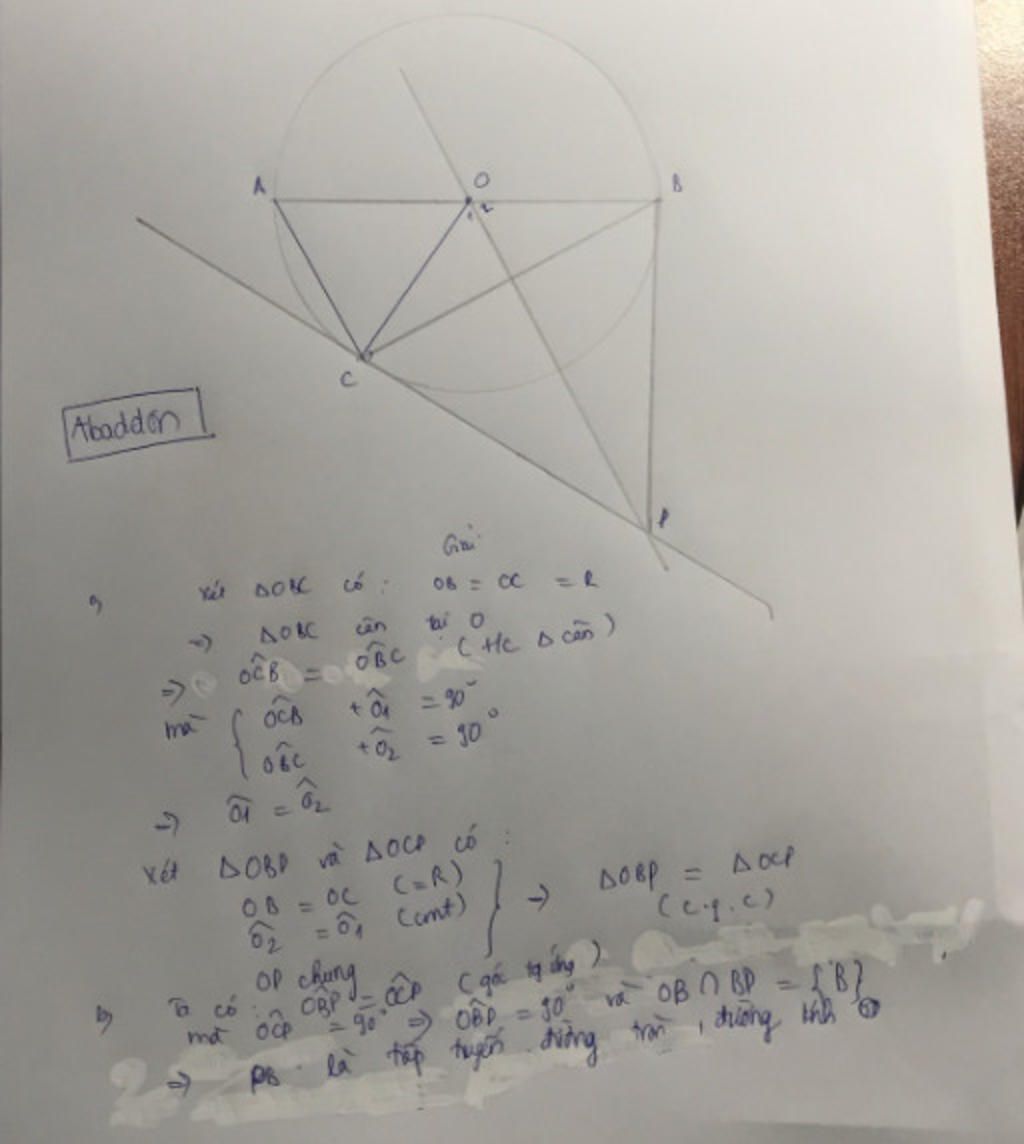 A
O
B
1 2
C
Abaddon
P
Giải
a,
Xét ΔOBC có : OB = OC = R
=> ΔOBC cân tại O
=> OĈB = OB̂C ( t/c Δ cân )
mà { OĈB + Ô1 = 90°
OB̂C + Ô2 = 90°
=> Ô1 = Ô2
Xét ΔOBP và ΔOCP có :
OB = OC (=R)
Ô2 = Ô1 (cmt)
OP chung
} => ΔOBP = ΔOCP
( c.g.c )
b, Ta có : OB̂P = OĈP (góc tg ứng )
mà OĈP = 90° => OB̂P = 90° và OB ∩ BP = {B}
=> PB là tiếp tuyến đường tròn , đường kính